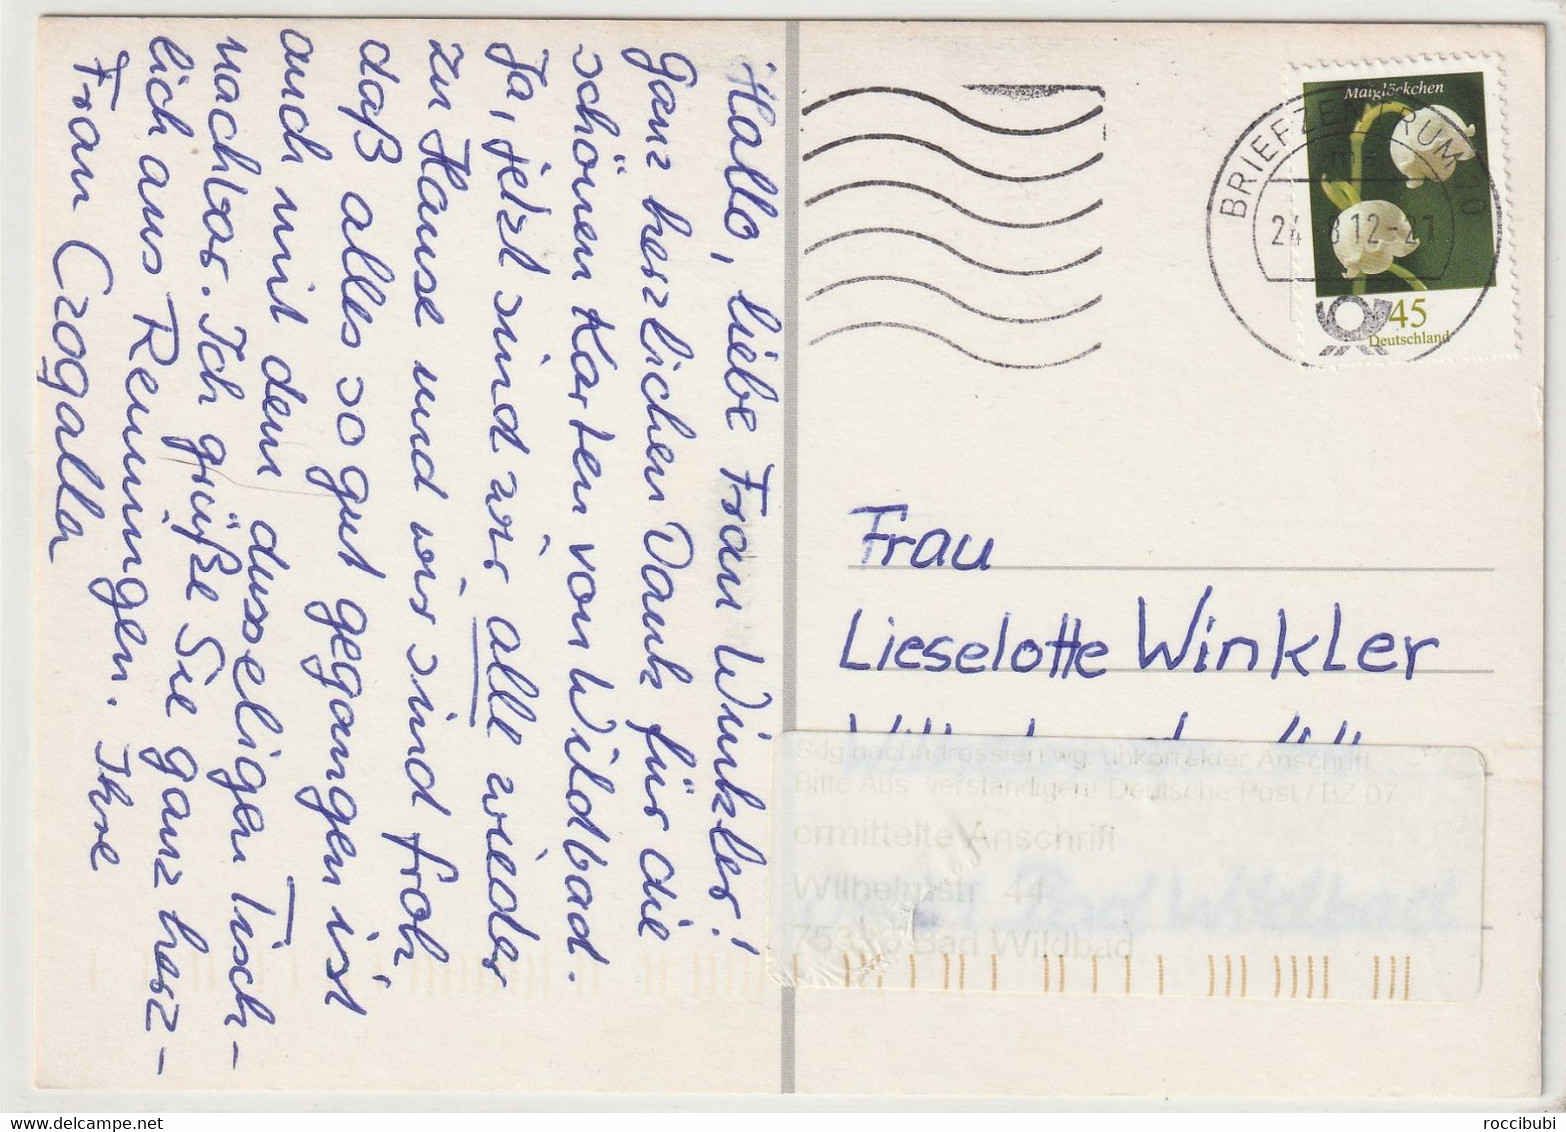 Hallo, liebe Frau Winkler!
Ganz herzlichen Dank für die
schönen Karten von Wildbad.
Ja, jetzt sind wir alle wieder
zu Hause und wir sind froh
daß alles so gut gegangen ist
auch mit dem dusseligen Tisch-
nachbar. Ich grüße Sie ganz herz-
lich aus Renningen. Ihre
Frau Czogalla
Maiglöckchen
45
Deutschland
BRIEFZENTRUM
12-21
Frau
Lieselotte Winkler
Sdg nachadressiert wg. unkorrekter Anschrift
Bitte Abs. verständigen! Deutsche Post / BZ 07
ermittelte Anschrift
Wilhelmstr. 44
Bad Wildbad
Bad Wildbad
roccibubi